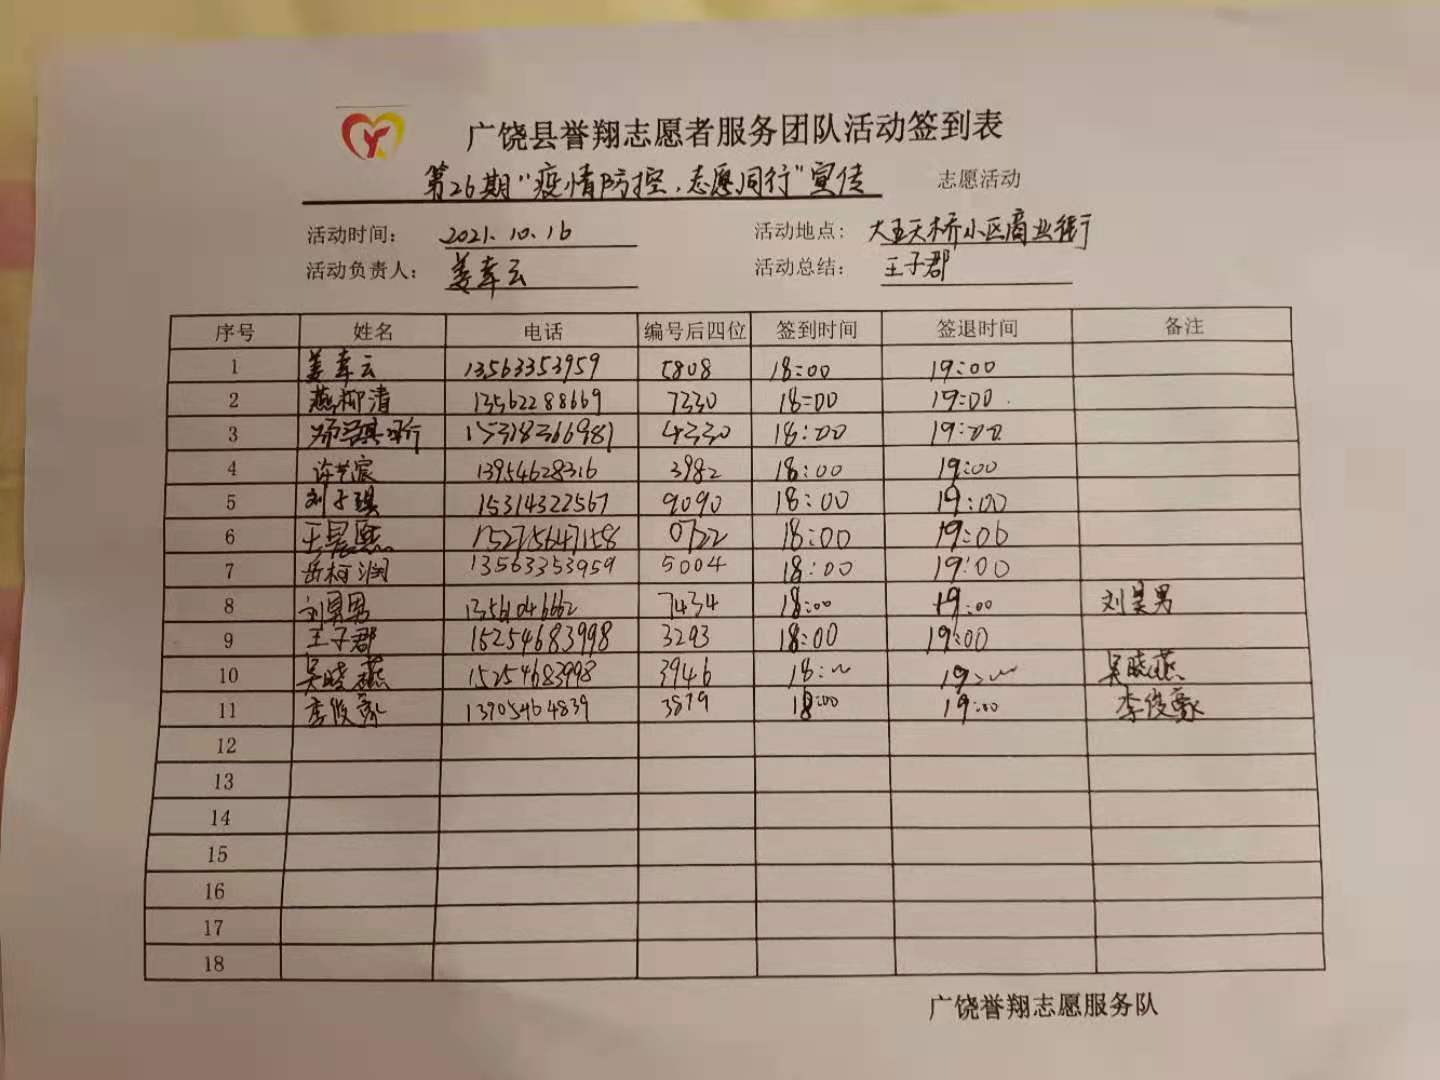 广饶县誉翔志愿者服务团队活动签到表
第26期“疫情防控,志愿同行”宣传 志愿活动
活动时间: 2021.10.16 活动地点: 大王天桥小区商业街
活动负责人: 姜幸云 活动总结: 王子郡
序号 姓名 电话 编号后四位 签到时间 签退时间 备注
1 姜幸云 13563353959 5808 18:00 19:00
2 燕柳清 13562288669 7330 18:00 19:00
3 15318366981 4330 18:00 19:00
4 许艺宸 13954628316 3982 18:00 19:00
5 刘子琪 15314322567 9090 18:00 19:00
6 王昱熹 15275647158 0722 18:00 19:00
7 岳柯润 13563353959 5004 18:00 19:00
8 刘昊男 13561046662 7434 18:00 19:00 刘昊男
9 王子郡 15254683998 3293 18:00 19:00
10 吴晓燕 15254683998 3946 18:~ 19:~ 吴晓燕
11 李俊豪 13905464839 3879 18:00 19:00 李俊豪
12
13
14
15
16
17
18
广饶誉翔志愿服务队